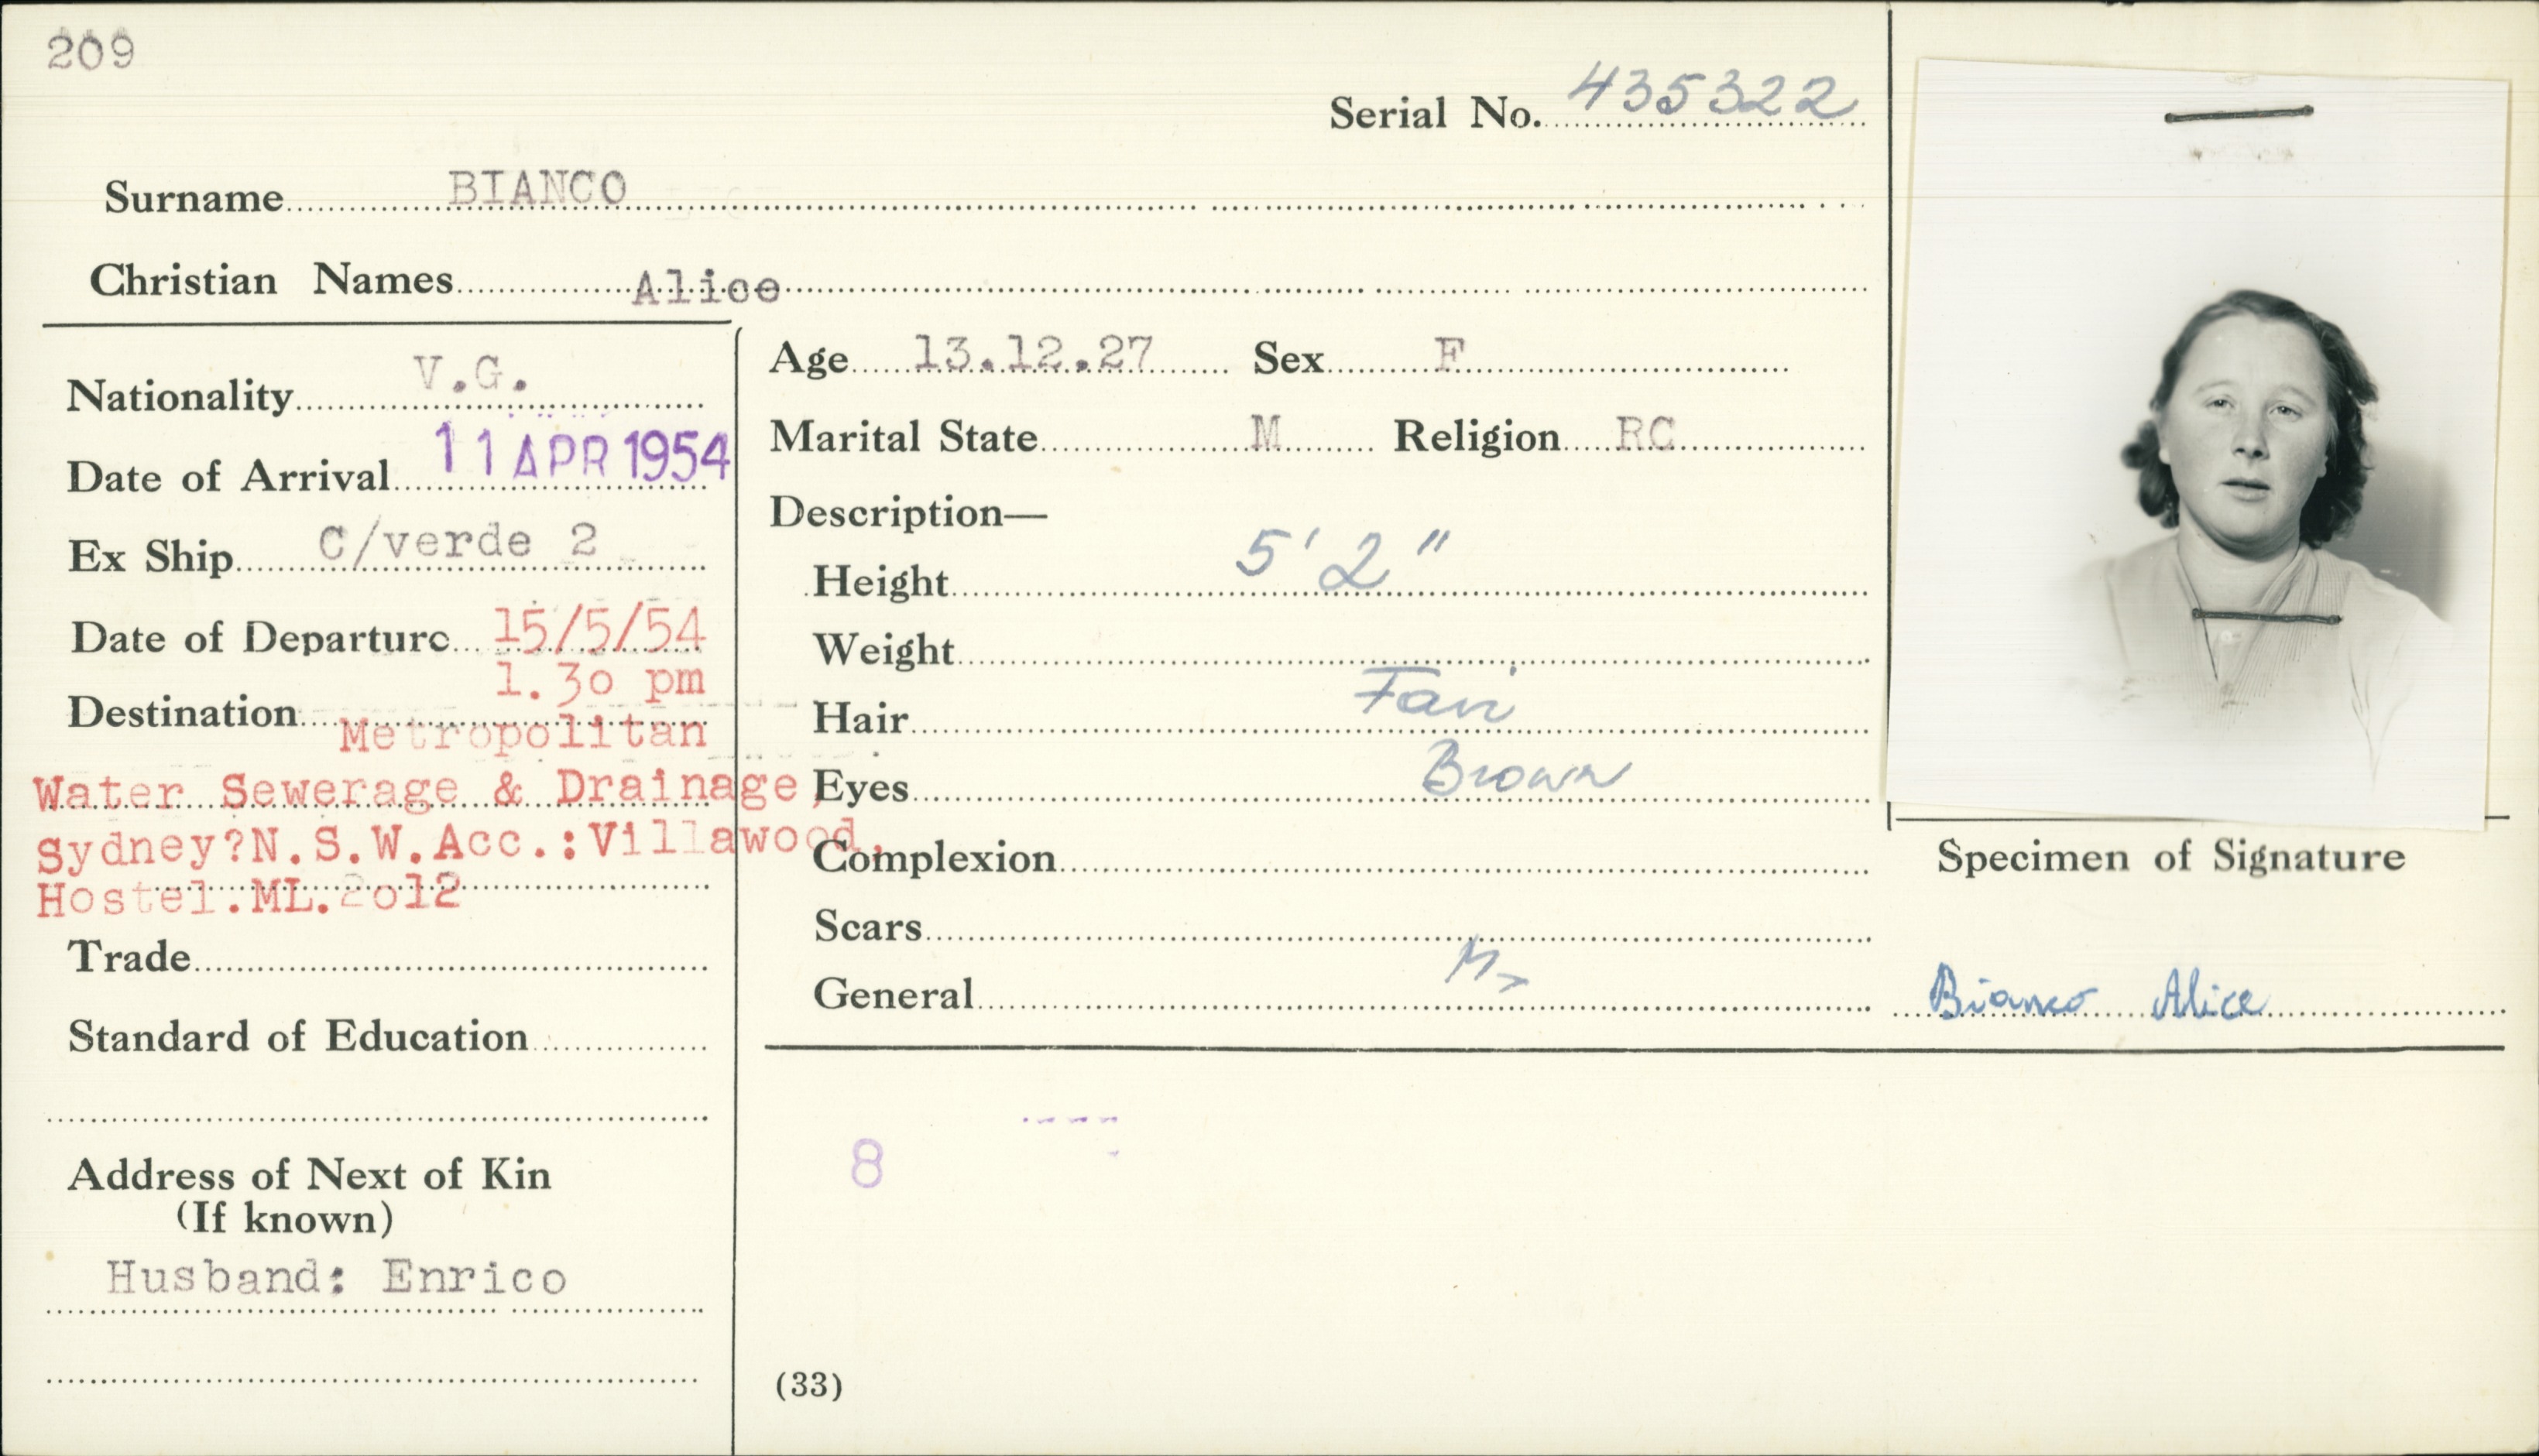 209
Serial No. 435322
Surname BIANCO
Christian Names Alice
Nationality V.G.
Date of Arrival 11 APR 1954
Ex Ship C/verde 2
Date of Departure 15/5/54
1.30 pm
Destination Metropolitan
Water Sewerage & Drainage,
Sydney?N.S.W.Acc.:Villawood,
Hostel.ML.2o12
Trade
Standard of Education
Address of Next of Kin
(If known)
Husband: Enrico
Age 13.12.27 Sex F
Marital State M Religion RC
Description—
Height 5' 2"
Weight
Hair Fair
Eyes Brown
Complexion
Scars
General
8
(33)
Specimen of Signature
Bianco Alice